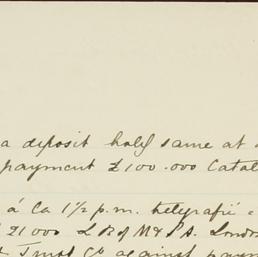 a deposit hold same at
payment £100.000 Catal
á Ca 1½ p.m. telegrafié
21000 L B of M & S A. Londr
Trust Co against paym